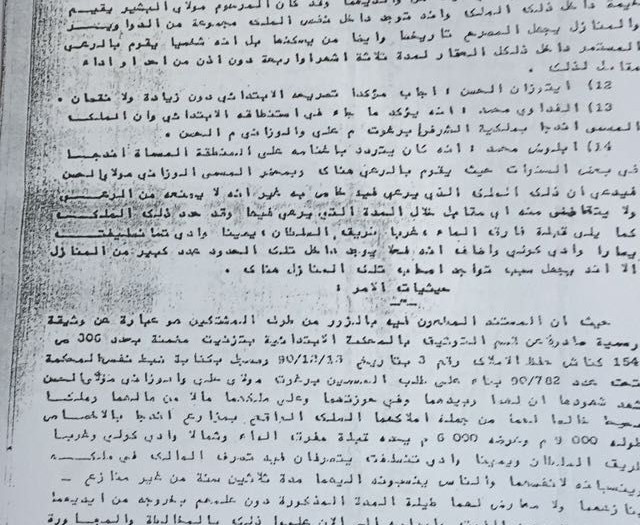 داخل ذلك الملك وانه توجد داخل نفس الملك مجموعة من الدواوير
والمنازل يجهل المصرح تاريخها وايضا من يسكنها بل انه شخصيا يقوم بالرعي
المستمر داخل ذلك العقار لمدة ثلاثة اشهر او اربعة دون اذن من احد او اداء
مقابل لذلك .
12) ايتوزان الحسن : اجاب مؤكدا تصريحه الابتدائي دون زيادة ولا نقصان .
13) الغداوي محمد : انه يؤكد ما جاء في استنطاقه الابتدائي وان الملك
المسمى اندجا بملكية الشرفاء برغوت م علي والوزاني م الحسن .
14) ابلوش محمد : انه كان يتردد باغنامه على المنطقة المسماة اندجا
في بعض السنوات حيث يقوم بالرعي هناك وبمحضر المسمى الوزاني مولاي الحسن
فيدعي ان ذلك الملك الذي يرعى فيه خاص به غير انه لا يمنعه من الرعي
ولا يتقاضى منه اي مقابل خلال المدة التي يرعى فيها وقد حدد ذلك الملك
كما يلي قبلة فارق الماء ، غربا طريق السلطان ، يمينا وادي تمانسليفت
يسارا وادي كولي واضاف انه فعلا يوجد داخل تلك الحدود عدد كبير من المنازل
الا انه يجهل سبب تواجد اصحاب تلك المنازل هناك .
حيثيات الامر :
حيث ان المستند المطعون فيه بالزور من طرف المشتكين هو عبارة عن وثيقة
رسمية صادرة عن قسم التوثيق بالمحكمة الابتدائية بتزنيت مضمنة بعدد 306 ص
154 كناش حفظ الاملاك رقم 3 بتاريخ 90/12/13 وسجل بكتابة ضبط نفس المحكمة
تحت عدد 90/782 بناء على طلب المسميين برغوت مولاي علي والوزاني مولاي الحسن
شهد شهودها ان لهما وبيدهما وفي حوزتهما وعلى ملكهما مالا من مالهما وملكا
صحيحا خالصا لهما من جملة املاكهما الملك الواقع بمزارع اندجا بالاخصاص
طوله 9 000 م وعرضه 6 000 م يحده قبلة مفرق الماء وشمالا وادي كولي وغربا
طريق السلطان ويمينا وادي تنسلفت يتصرفان فيه تصرف المالك في ملكه
ينسبانه لانفسهما والناس ينسبونه اليهما مدة ثلاثين سنة من غير منازع -
نازعهما ولا معارض لهما طيلة المدة المذكورة دون علمهم بخروجه من ايديهما